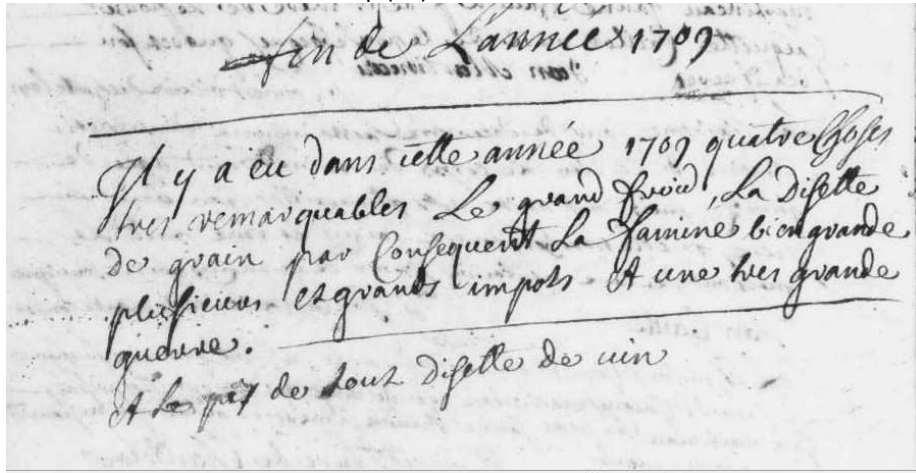 fin de Lannee 1709
Il y a eu dans cette année 1709 quatre Choses
tres remarquables Le grand froid, La Disette
de grain par Consequent La famine bien grande
plusieurs et grands impots et une tres grande
guerre.
et le pis de tout Disette de vin